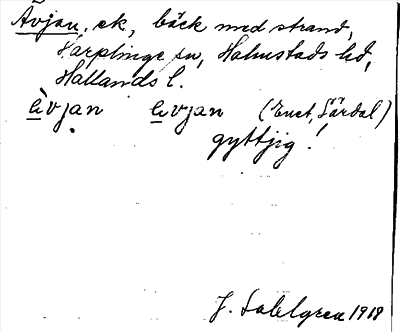 Ävjan, ek, bäck med strand,
Harplinge sn, Halmstads hd,
Hallands l.
ä̀vjan ävjan (Enet, Särdal)
gyttjig!
J. Sahlgren 1918